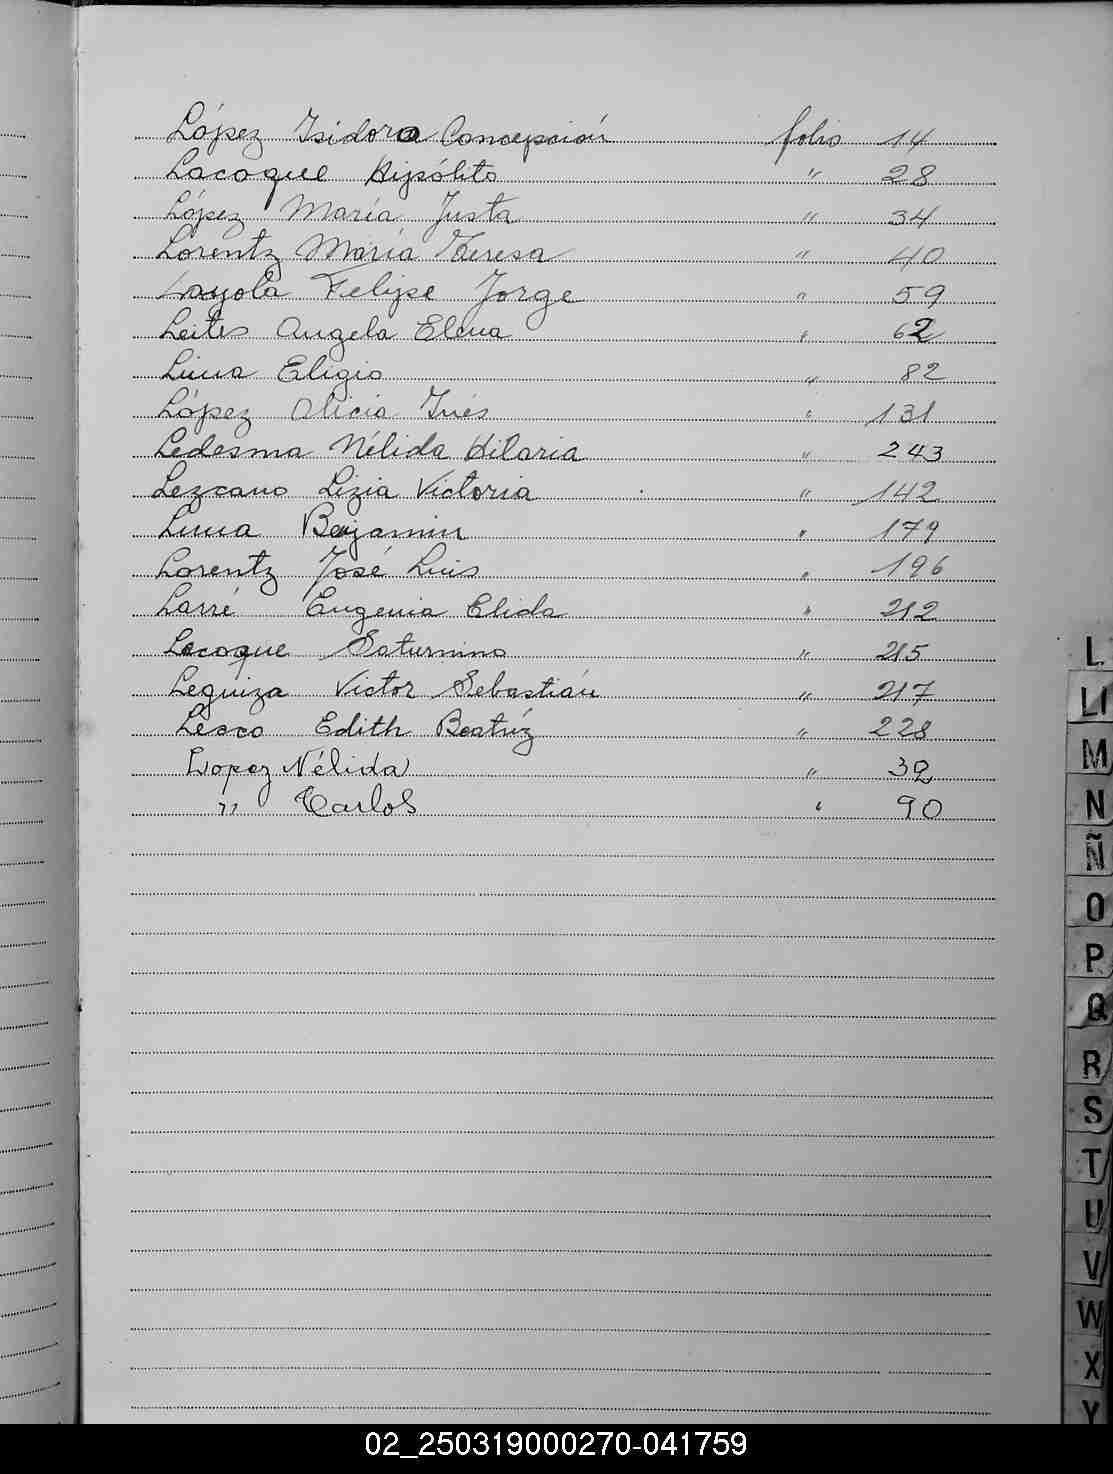 López Isidora Concepción folio 14
Lacoque Hipólito " 28
López María Justa " 34
Lorentz María Teresa " 40
Loyola Felipe Jorge " 59
Leites Angela Elena " 62
Luna Eligio " 82
López Alicia Inés " 131
Ledesma Nélida Hilaria " 243
Lezcano Lizia Victoria " 142
Luna Benjamin " 179
Lorentz José Luis " 196
Larré Eugenia Elida " 212
Lacoque Saturnino " 215
Leguiza Victor Sebastián " 217
Lesco Edith Beatríz " 228
Lopez Nélida " 32
" Carlos " 90
L
Ll
M
N
Ñ
O
P
Q
R
S
T
U
V
W
X
Y
02_250319000270-041759